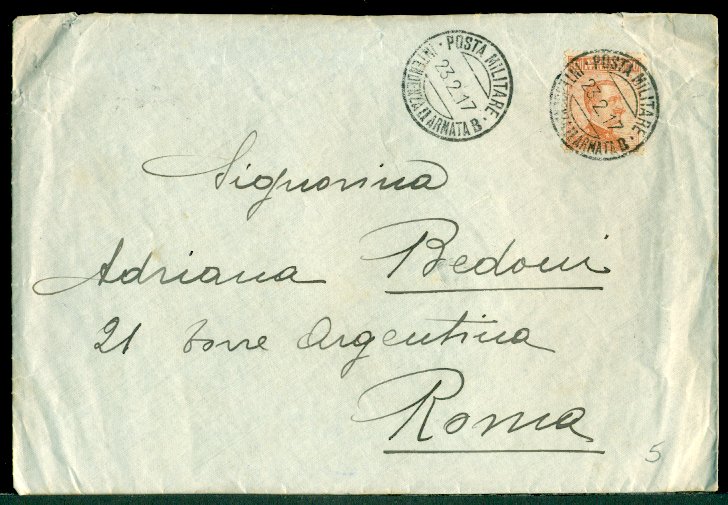 POSTA MILITARE · INTENDENZA II ARMATA B ·
23.2.17
POSTA MILITARE · II ARMATA B ·
23.2.17
Signorina
Adriana Bedoni
21 torre Argentina
Roma
5